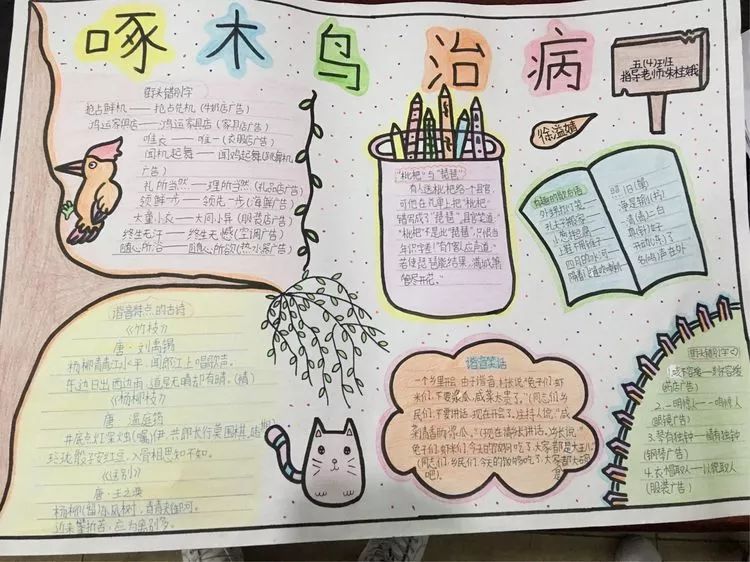 啄木鸟治病
五(4)班
指导老师朱桂娥
徐溢婧
街头错别字
抢占鲜机——抢占先机(手机店广告)
鸿运家具店——鸿运家具店(家具店广告)
唯衣——唯一(衣服店广告)
闻机起舞——闻鸡起舞(跳舞机
广告)
礼所当然——理所当然(礼品店广告)
领鲜一步——领先一步(海鲜广告)
大童小衣——大同小异(服装店广告)
终生无汗——终生无憾(空调广告)
随心所浴——随心所欲(热水器广告)
"枇杷"与"琵琶"
有人送枇杷给一个县官,
可他在礼单上把"枇杷"
错写成了"琵琶",县官笑道:
"枇杷不是此'琵琶',只恨当
年识字差!"有个客人应声道:
若使琵琶能结果,满城箫
管尽开花。
有趣的歇后语
外甥打灯笼——
孔夫子搬家——
小葱拌豆腐——
四月的冰河——
照旧(舅)
净是输(书)
一清二白
真(针)好
开动(冻)了
名(鸣)声在外
谐音特点的古诗
《竹枝》
唐·刘禹锡
杨柳青青江水平,闻郎江上唱歌声。
东边日出西边雨,道是无晴却有晴。(情)
《杨柳枝》
唐 温庭筠
井底点灯深烛(嘱)伊,共郎长行莫围棋。
玲珑骰子安红豆,入骨相思知不知。
《送别》
唐·王之涣
杨柳(留)东风树,青青夹御河。
近来攀折苦,应为离别多。
谐音笑话
一个乡里开会,由于谐音,村长说:"兔子们,虾
米们,不要酱瓜,咸菜太贵了。"(同志们,乡
民们,不要讲话,现在开会了。主持人说,"咸
菜请香肠酱瓜。"(现在请乡长讲话。乡长说:"
兔子们,虾米们,今天的饭狗吃了,大家都是大王八"
(同志们,乡民们,今天的饭够吃了,大家都大碗
吧)。
街头错别字(2)
2.一明惊人——一鸣惊人
(眼镜广告)
3.琴有独钟——情有独钟
(钢琴广告)
4.衣帽取人——以貌取人
(服装广告)